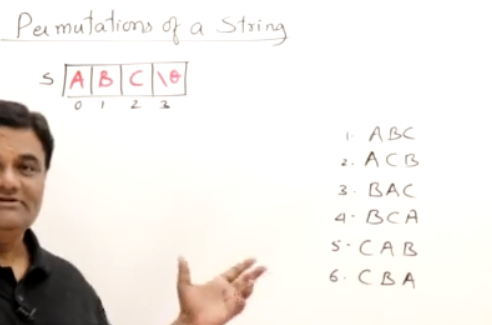 Permutations of a String
S A B C \0
0 1 2 3
1. ABC
2. ACB
3. BAC
4. BCA
5. CAB
6. CBA